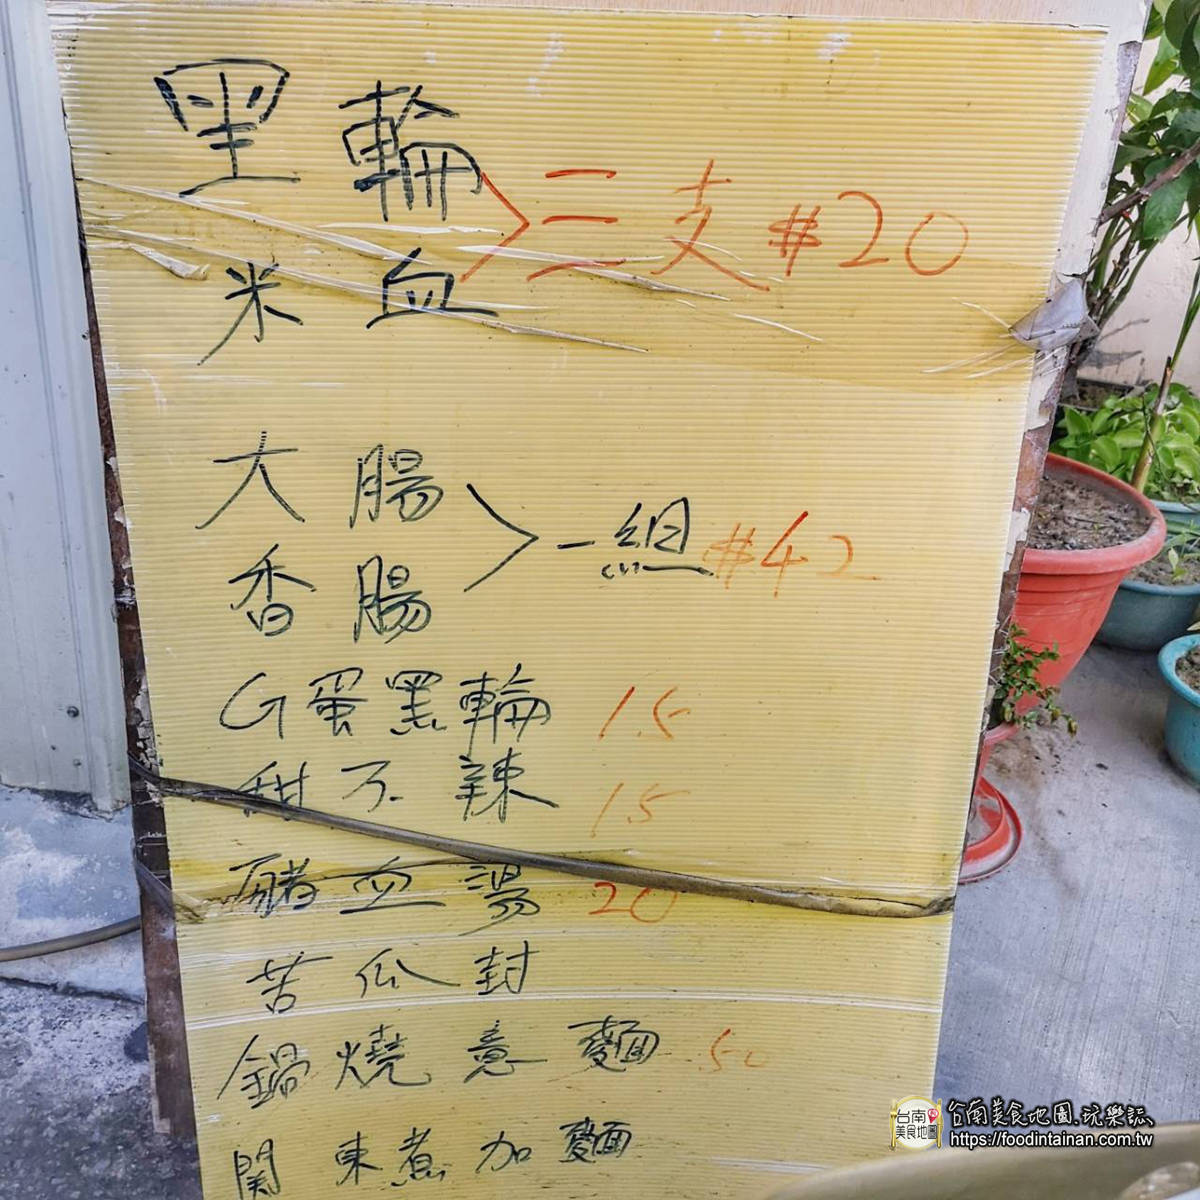 黑輪
米血
三支 #20
大腸
香腸
一組 #42
G蛋黑輪 15
甜不辣 15
豬血湯 20
苦瓜封
鍋燒意麵 50
関東煮加麵
台南美食地圖
台南美食地圖.玩樂誌
https://foodintainan.com.tw